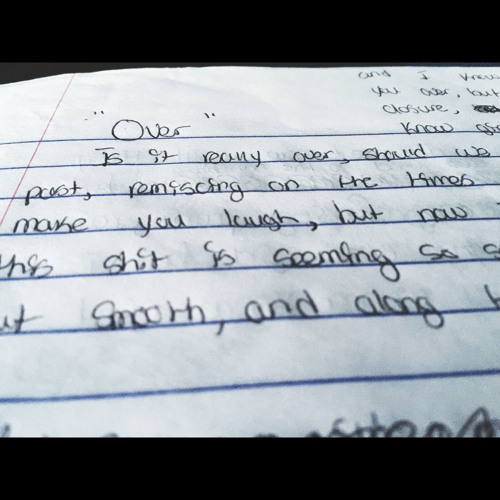 and I knew
you over, but
closure,
know
" Over "
Is it really over, should we
past, remiscing on the times
make you laugh, but now
this shit is seeming so
ut smooth, and along